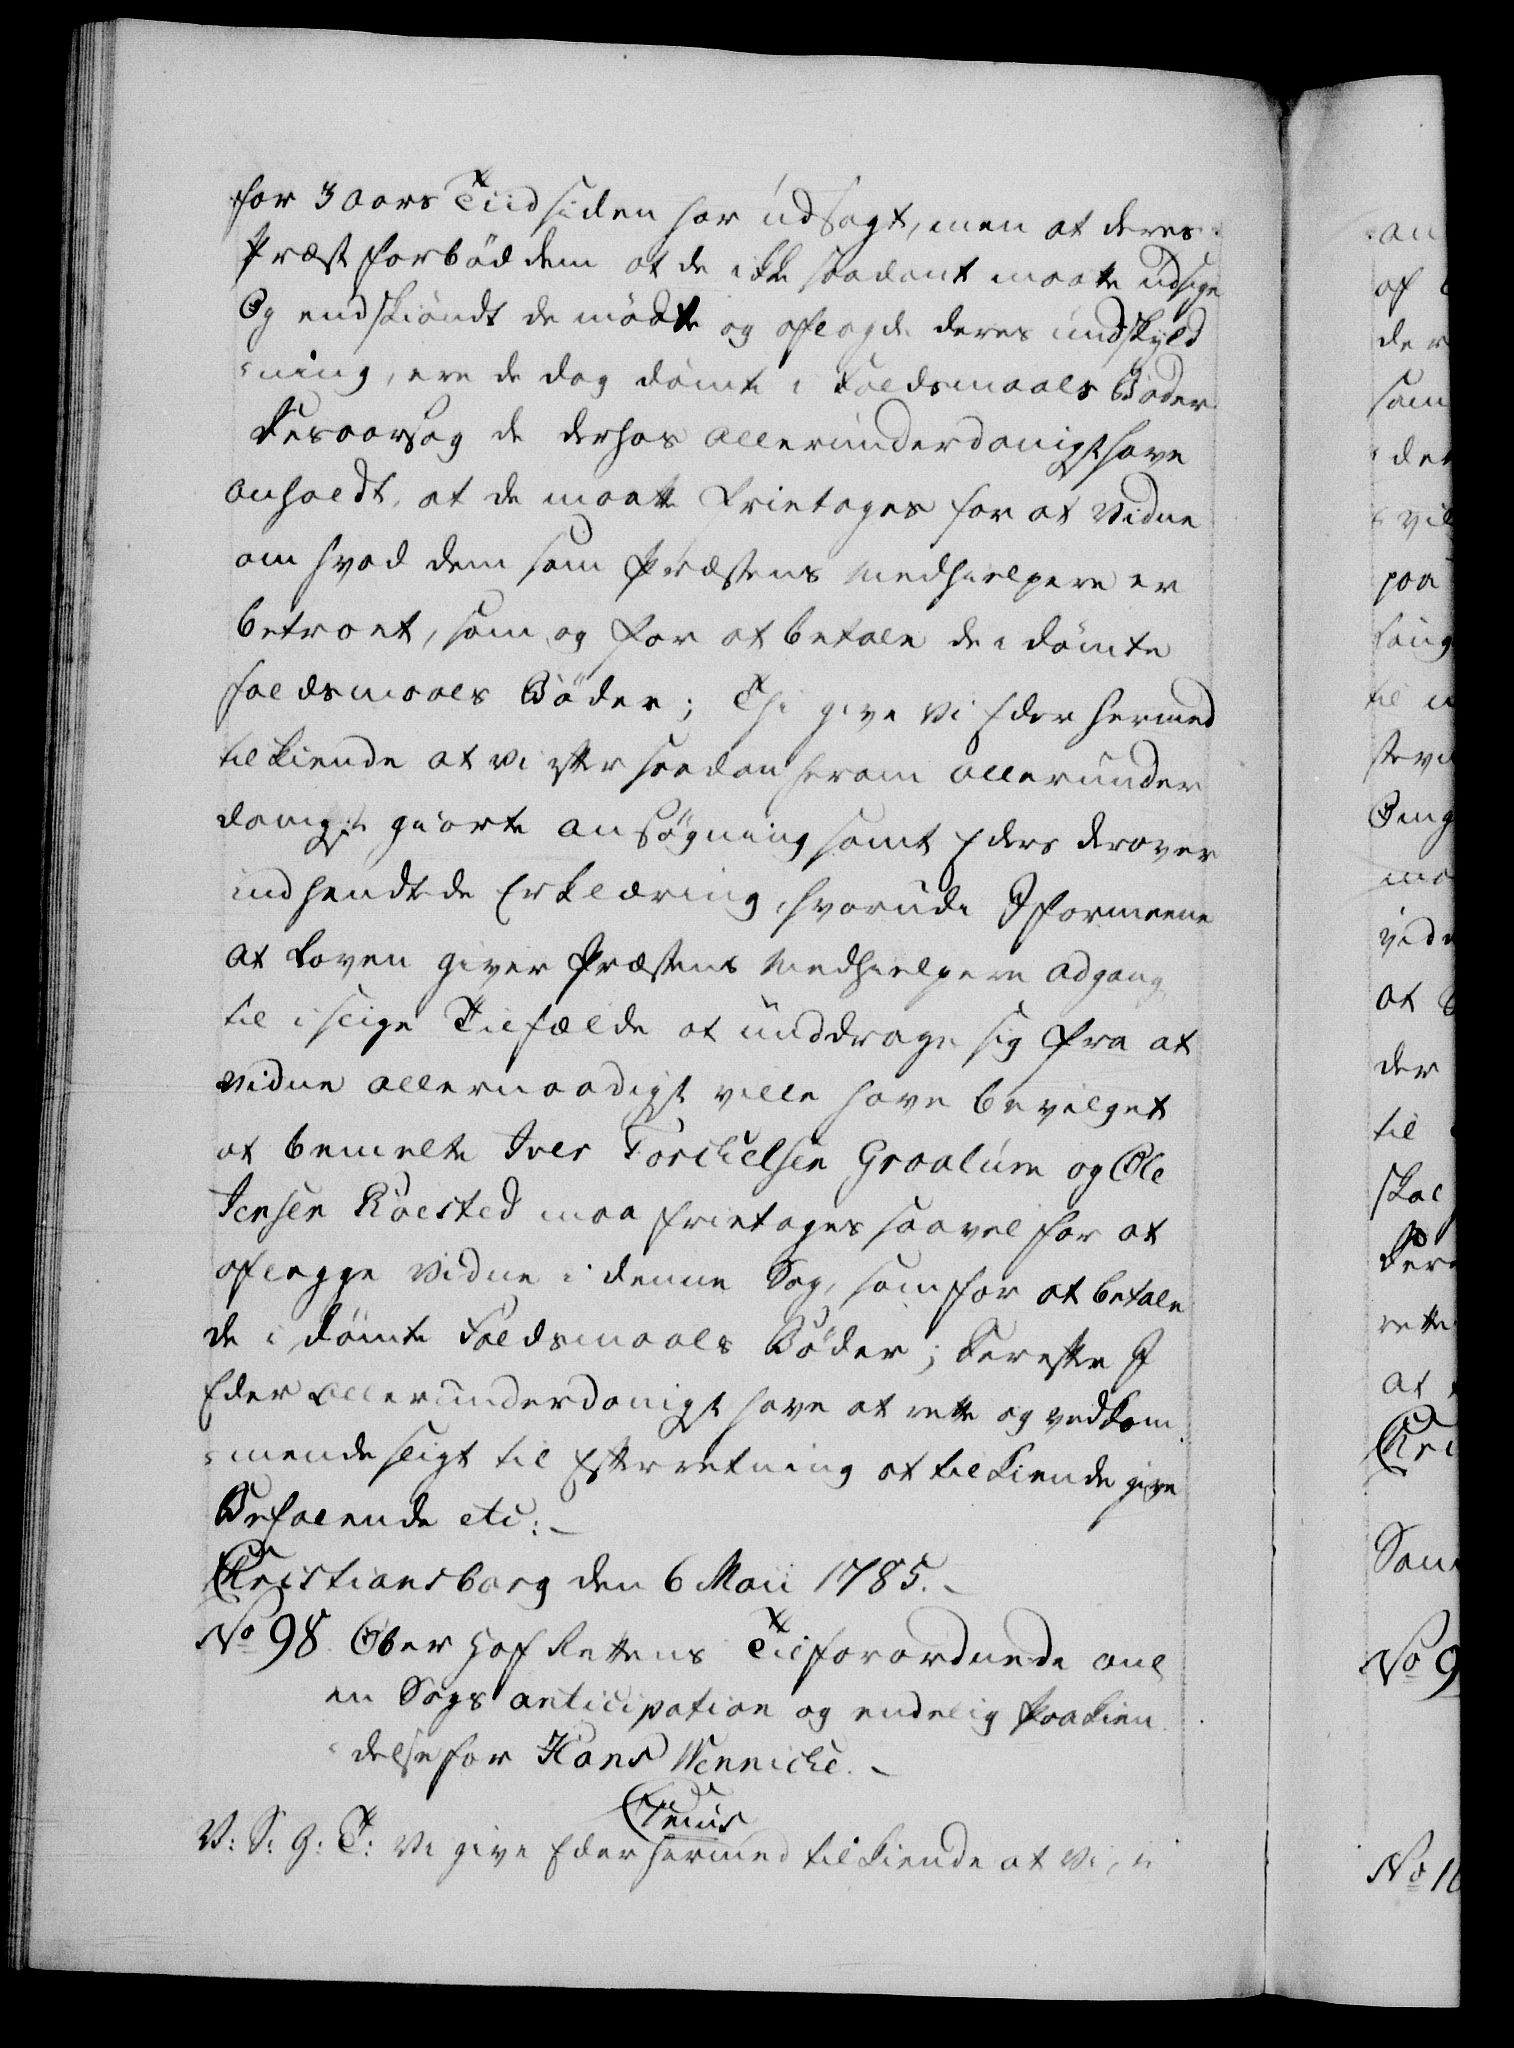 for 3 Aars Tiid siden har udsagt, men at deres
Præst forbød dem at de ikke saadant maate udsige
Og endskiøndt de mødte og aflagde deres undskyld
-ning, ere de dog dømte i Faldsmaals Bøder.
Desaarsag de derhos allerunderdanigst have
anholdt, at de maatte frietages for at vidne
om hvad dem som Præstens Medhielpere er
betroet, som og for at betale de idømte
faldsmaals Bøder; Thi give Vi Eder hermed
tilkiende at vi efter saadan herom allerunder
danigst giorte ansøgning samt Eders derover
indhendtede Erklæring, hvorudi I formeene
at Loven giver Præstens Medhielpere adgang
til i slige Tilfælde at unddrage sig fra at
vidne allernaadigst ville have bevilget
at bemelte Iver Torchelsen Graalum og Ole
Jensen Roested maa frietages saavel for at
aflegge Vidne i denne Sag, som for at betale
de i dømte Faldsmaals Bøder; Derefter I
Eder allerunderdanigst have at rette og vedkom
-mende sligt til Efterretning at tilkiende give
Befalende etc:
Christiansborg den 6 Maii 1785.
No 98 Ober Hof Rettens Tilforordnede anl
en Sags anticipation og endelig Paakien
-delse for Hans Wennicke.
V: S: G: T: Vi give Eder hermed tilkiende at Vi, i
an
af
der
som
paa
til
vidn
at
der
til
skal
rette
at
No 9
No 10